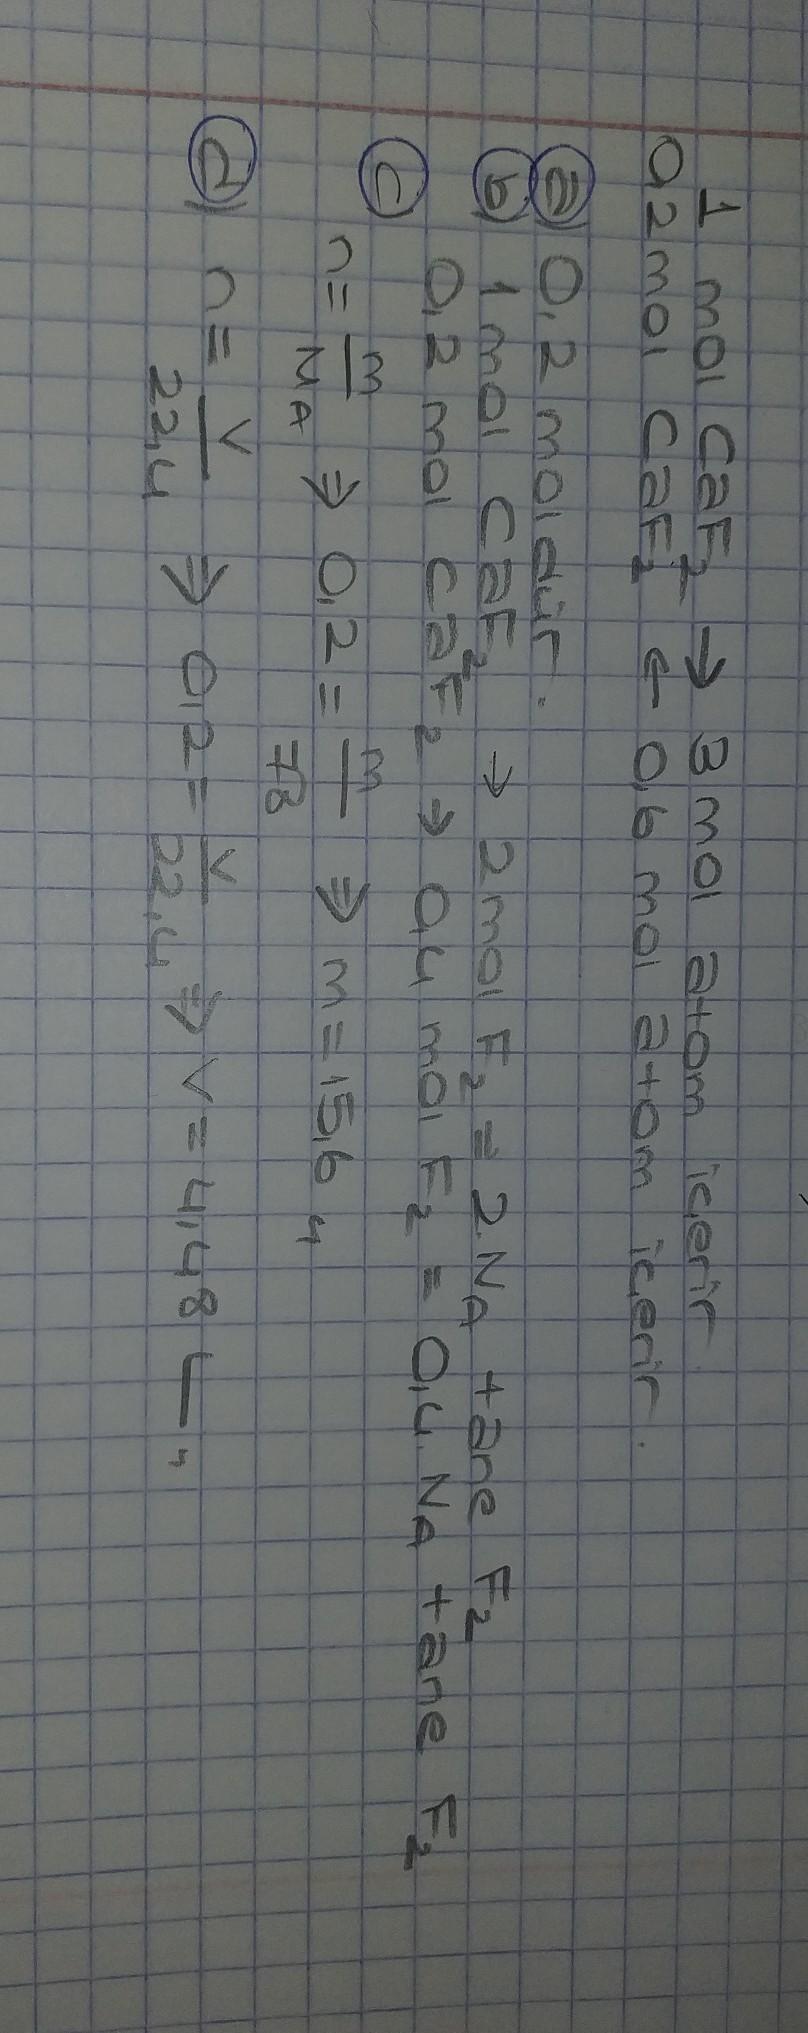 1 mol CaF₂ → 3 mol atom içerir.
0,2 mol CaF₂ ← 0,6 mol atom içerir.
a) 0,2 moldür.
b) 1 mol CaF₂ → 2 mol F₂ = 2 NA tane F₂
0,2 mol CaF₂ → 0,4 mol F₂ = 0,4 NA tane F₂
c)
n = m/NA ⇒ 0,2 = m/78 ⇒ m = 15,6 〃
d) n = V/22,4 ⇒ 0,2 = V/22,4 ⇒ V = 4,48 L 〃